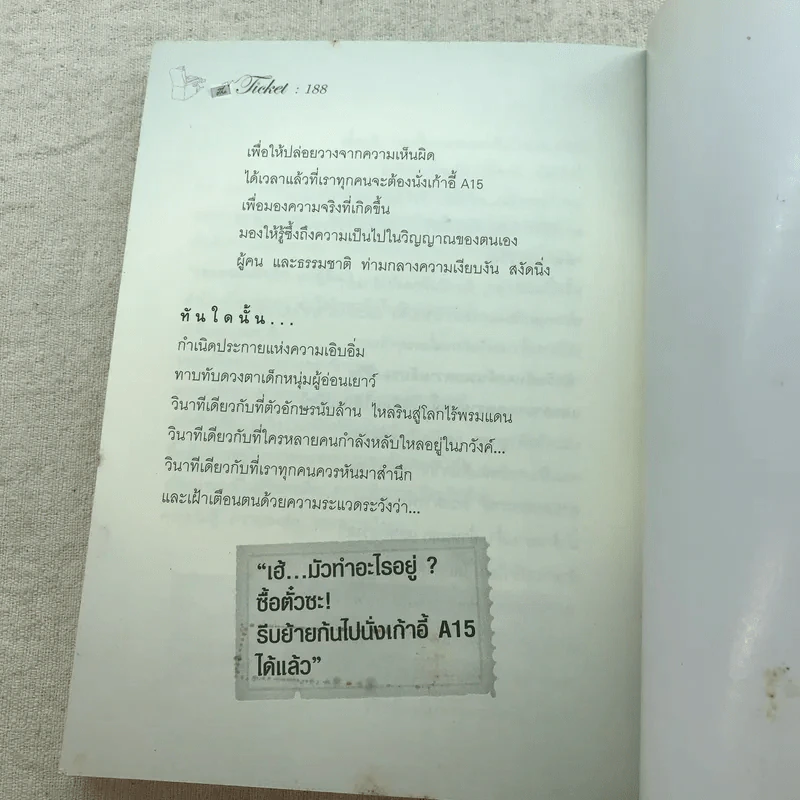 Ticket : 188
เพื่อให้ปล่อยวางจากความเห็นผิด
ได้เวลาแล้วที่เราทุกคนจะต้องนั่งเก้าอี้ A15
เพื่อมองความจริงที่เกิดขึ้น
มองให้รู้ซึ้งถึงความเป็นไปในวิญญาณของตนเอง
ผู้คน และธรรมชาติ ท่ามกลางความเงียบงัน สงัดนิ่ง
ทันใดนั้น...
กำเนิดประกายแห่งความเอิบอิ่ม
ทาบทับดวงตาเด็กหนุ่มผู้อ่อนเยาว์
วินาทีเดียวกับที่ตัวอักษรนับล้าน ไหลรินสู่โลกไร้พรมแดน
วินาทีเดียวกับที่ใครหลายคนกำลังหลับใหลอยู่ในภวังค์...
วินาทีเดียวกับที่เราทุกคนควรหันมาสำนึก
และเฝ้าเตือนตนด้วยความระแวดระวังว่า...
“เฮ้...มัวทำอะไรอยู่ ?
ซื้อตั๋วซะ!
รีบย้ายก้นไปนั่งเก้าอี้ A15
ได้แล้ว”